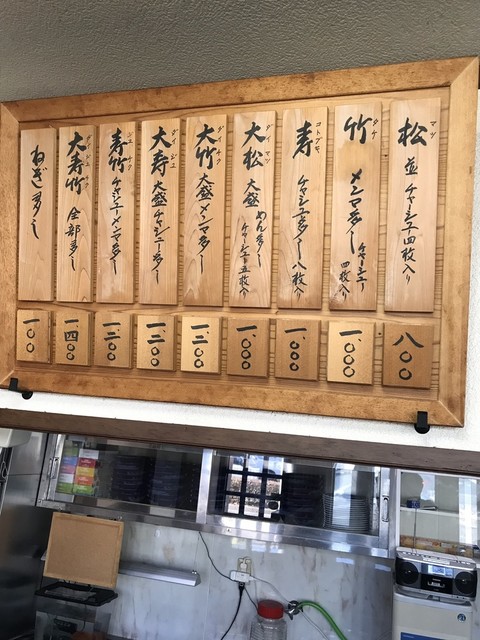 松 マツ
並 チャーシュー四枚入り
八〇〇
竹 タケ
メンマ多し
チャーシュー四枚入り
一、〇〇〇
寿 コトブキ
チャーシュー多し 八枚入り
一、〇〇〇
大松 ダイマツ
大盛 めん多し
チャーシュー五枚入り
一、〇〇〇
大竹 ダイタケ
大盛メンマ多し
一、二〇〇
大寿 ダイジュ
大盛チャーシュー多し
一、二〇〇
寿竹 ジュチク
チャーシューメンマ多し
一、二〇〇
大寿竹 ダイジュチク
全部多し
一、四〇〇
ねぎ多し
一〇〇